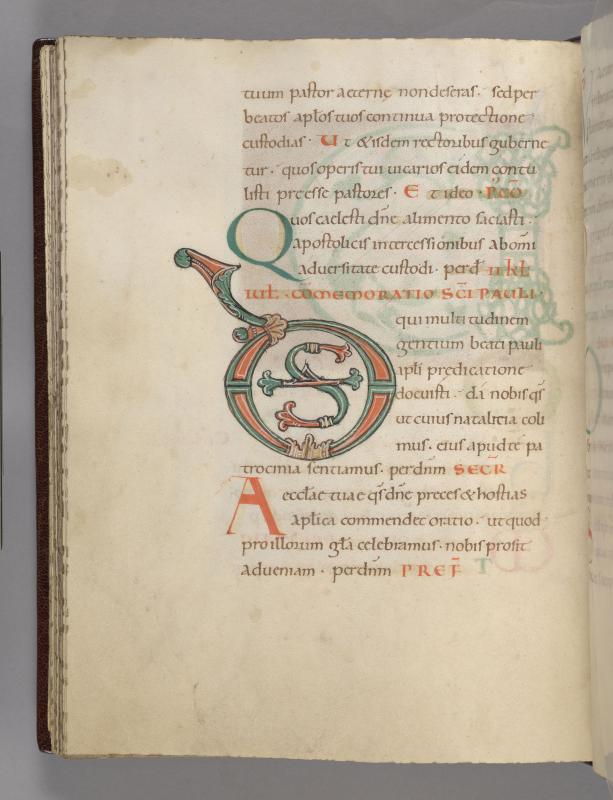 tuum pastor aeterne non deseras · sed per
beatos apłos tuos continua protectione
custodias · Ut & isdem rectoribus guberne
tur · quos operis tui vicarios eidem contu
listi preesse pastores · Et ideo · P̄ CŌ
Quos caelesti dn̄e alimento saciasti ·
apostolicis intercessionibus ab om̄i
adversitate custodi · per d II KL̄
IUL · COM̄EMORATIO SC̄I PAULI ·
DS qui multitudinem
gentium beati pauli
apłi predicatione
docuisti · da nobis qs̄
ut cuius natalitia coli
mus · eius apud te pa
trocinia sentiamus · per dn̄m SECR̄
Aecclae tuae qs̄ dn̄e preces & hostias
aplica commendet oratio · ut quod
pro illorum gła celebramus · nobis prosit
ad veniam · per dn̄m PREF̄ T